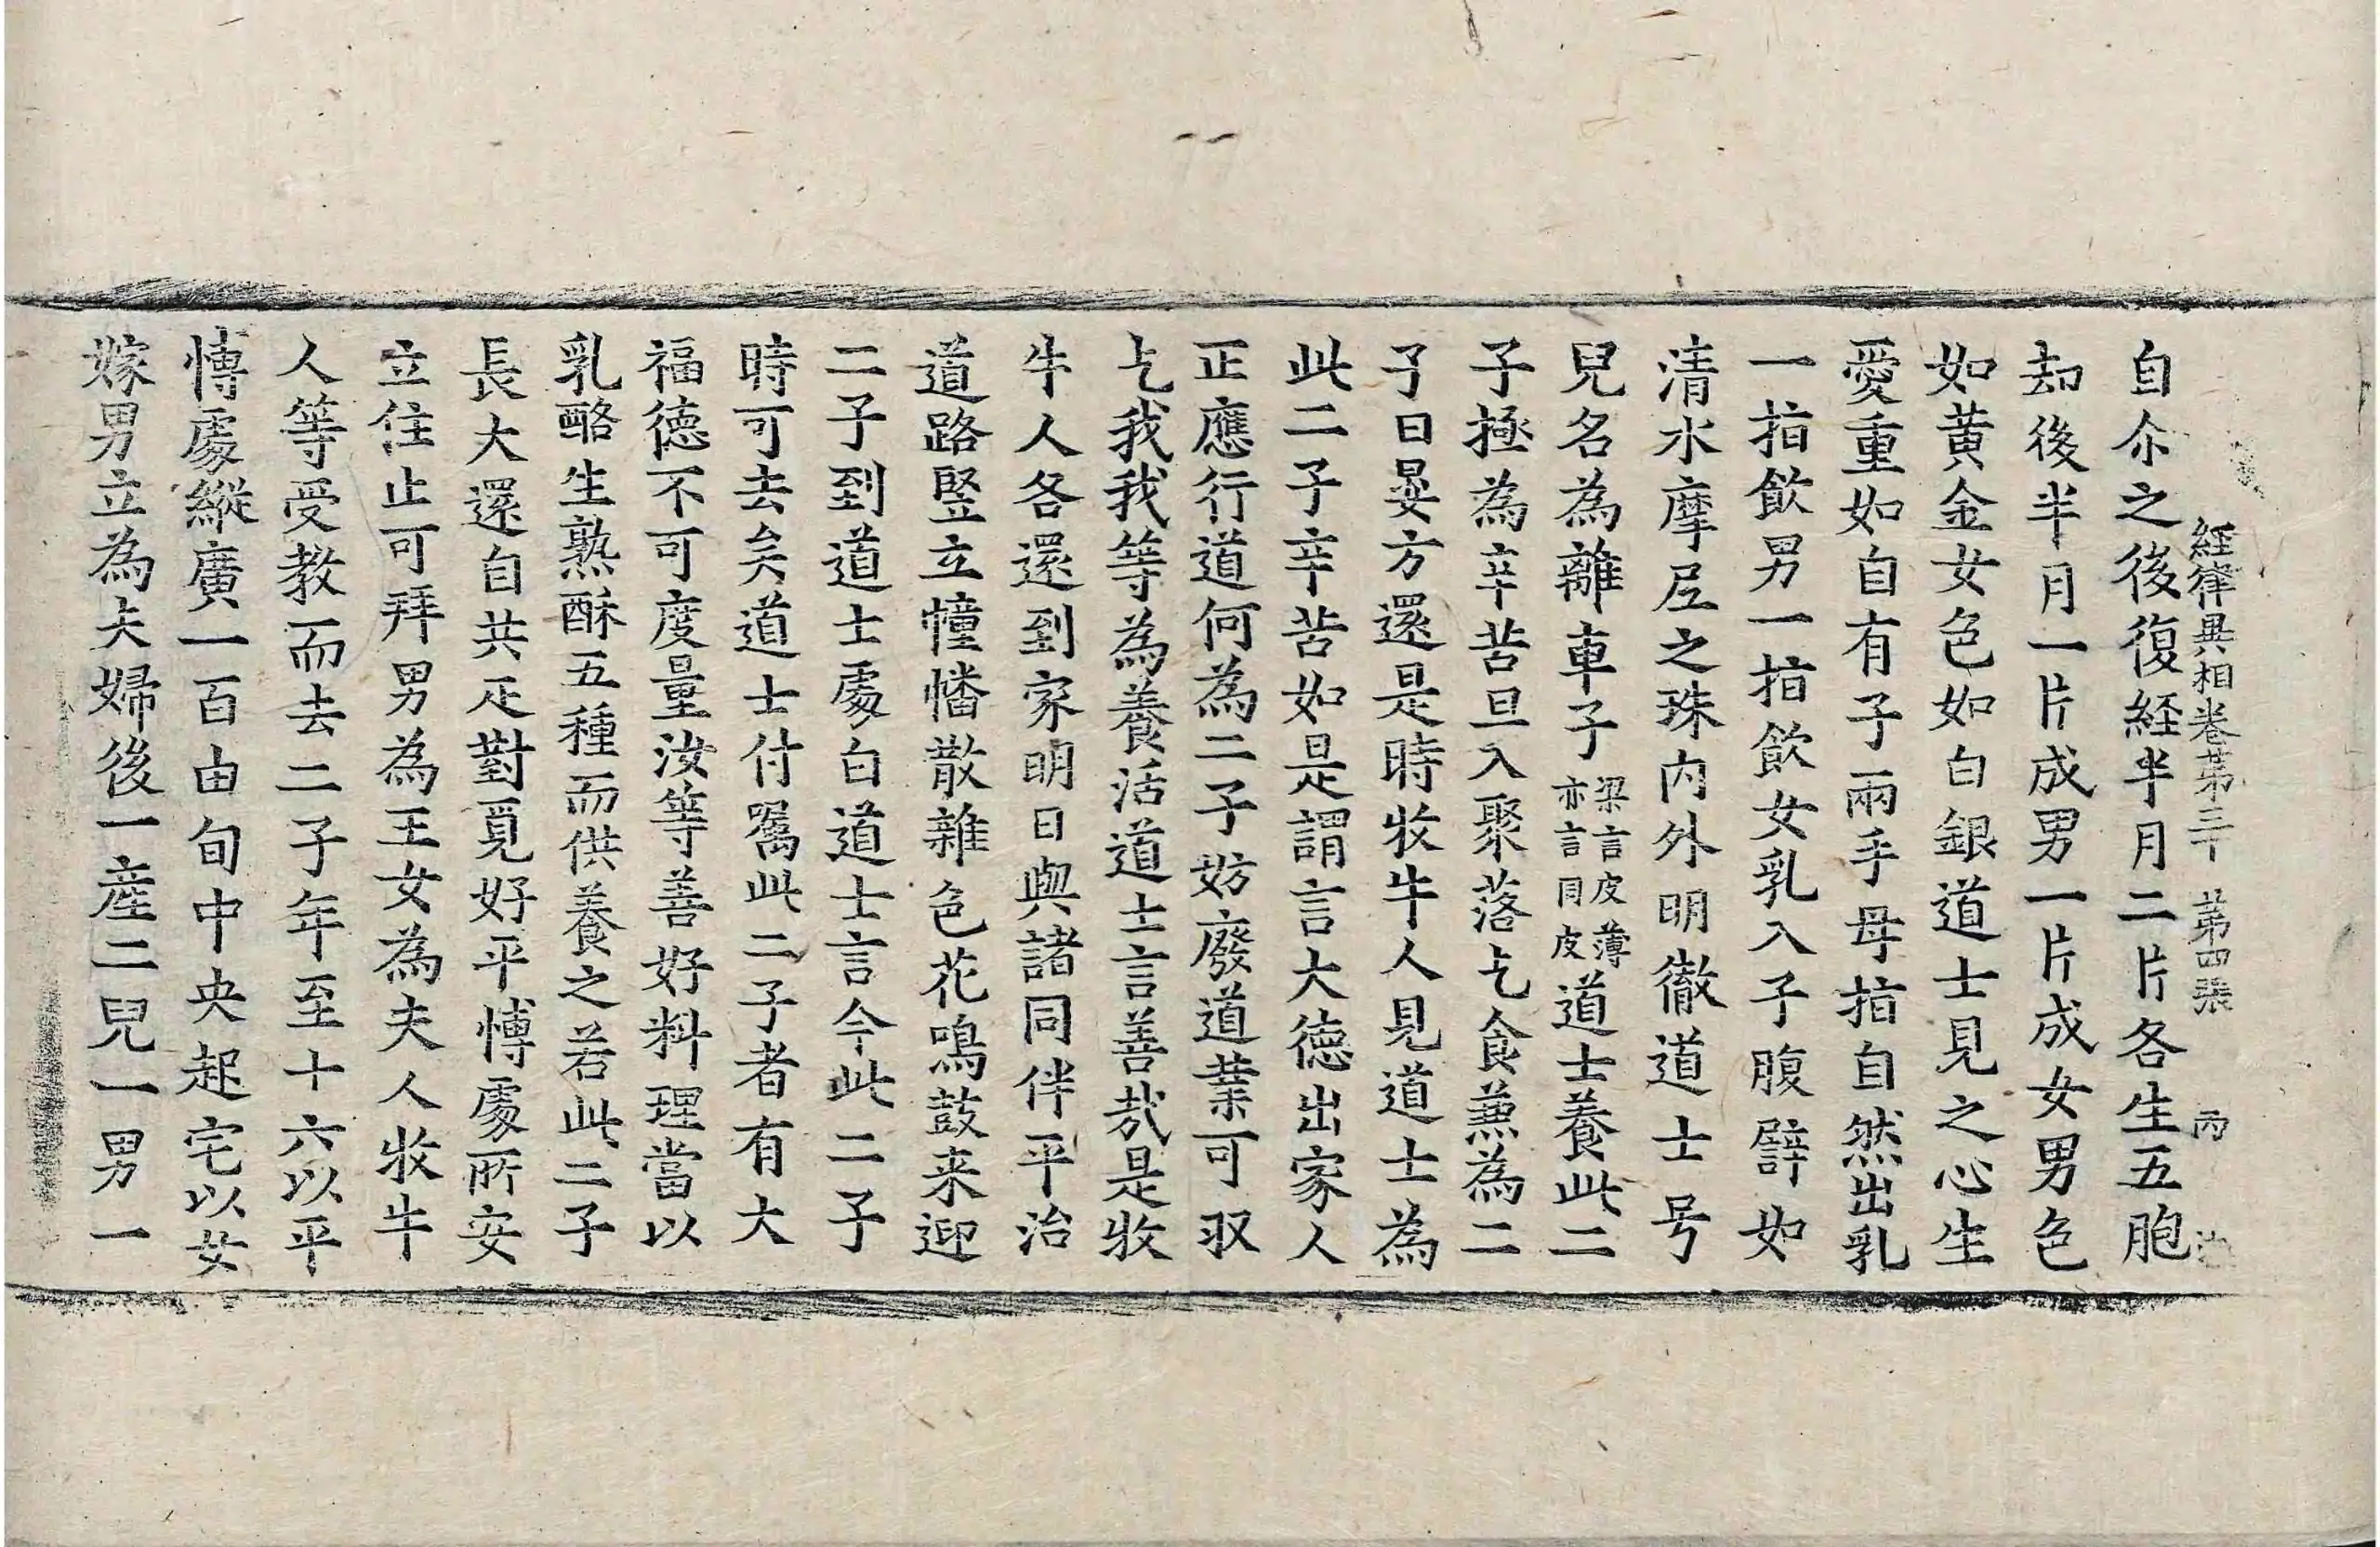 經律異相卷第三十 第四張 丙
自尒之後復経半月二片各生五胞
却後半月一片成男一片成女男色
如黄金女色如白銀道士見之心生
愛重如自有子兩手母指自然出乳
一指飲男一指飲女乳入子腹譬如
清水摩尼之珠内外明徹道士号
兒名為離車子梁言皮薄亦言同皮道士養此二
子極為辛苦旦入聚落乞食兼為二
子日晏方還是時牧牛人見道士為
此二子辛苦如是謂言大德出家人
正應行道何為二子妨廢道業可㕛
乞我我等為養活道士言善哉是牧
牛人各還到家明日與諸同伴平治
道路竪立幢幡散雜色花鳴鼓来迎
二子到道士處白道士言今此二子
時可去矣道士付嘱此二子者有大
福德不可度量汝等善好料理當以
乳酪生熟酥五種而供養之若此二子
長大還自共疋對覓好平博處所安
立住止可拜男為王女為夫人牧牛
人等受教而去二子年至十六以平
博處縱廣一百由旬中央起宅以女
嫁男立為夫婦後一産二兒一男一